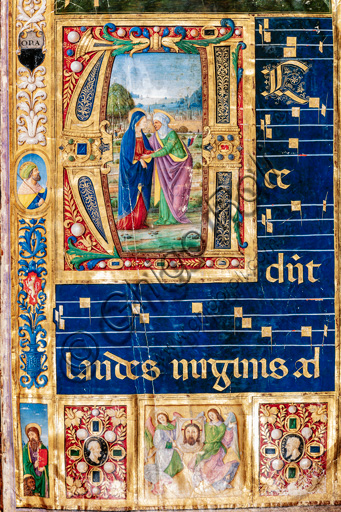 OPA
A C
ce
dūt
laudes uirginis ad